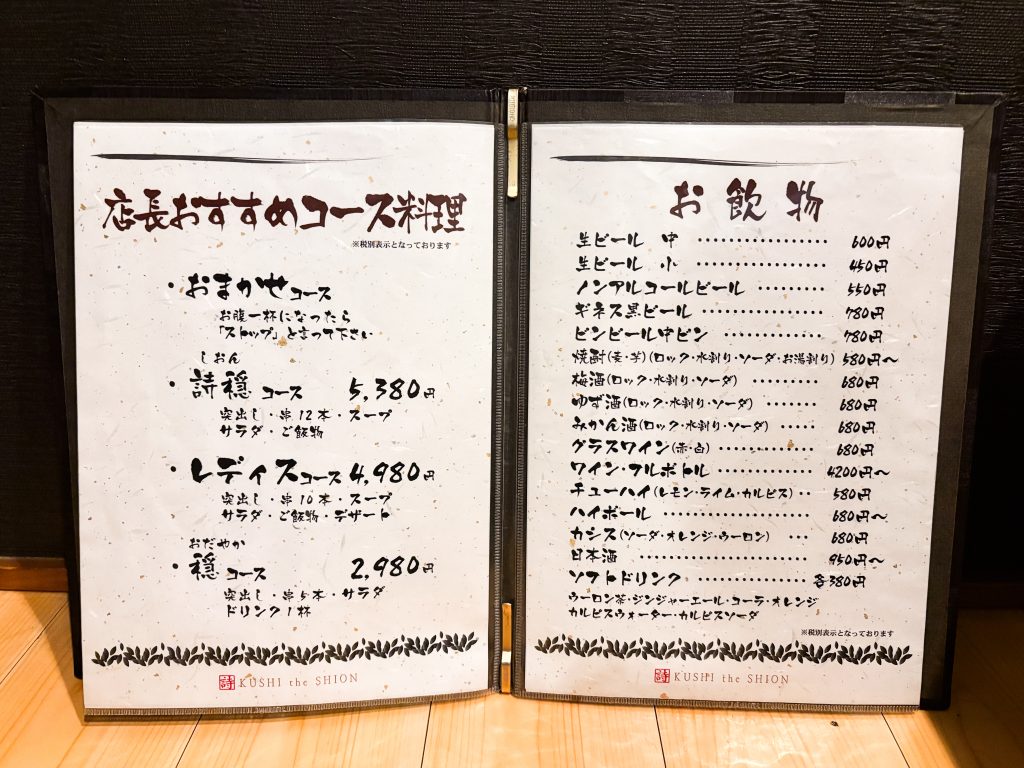 店長おすすめコース料理
※税別表示となっております
・おまかせコース
お腹一杯になったら
「ストップ」と言って下さい
しおん
・詩穏コース 5,380円
突出し・串12本・スープ
サラダ・ご飯物
・レディスコース 4,980円
突出し・串10本・スープ
サラダ・ご飯物・デザート
おだやか
・穏コース 2,980円
突出し・串5本・サラダ
ドリンク1杯
詩 KUSHI the SHION
お飲物
生ビール 中 ・・・・・・・・・・・・・・・ 600円
生ビール 小 ・・・・・・・・・・・・・・・ 450円
ノンアルコールビール ・・・・・・・・ 550円
ギネス黒ビール ・・・・・・・・・・・・ 780円
ビンビール中ビン ・・・・・・・・・・・・ 780円
焼酎(麦・芋)(ロック・水割り・ソーダ・お湯割り) 580円~
梅酒(ロック・水割り・ソーダ) ・・・・・・・・ 680円
ゆず酒(ロック・水割り・ソーダ) ・・・・・・・ 680円
みかん酒(ロック・水割り・ソーダ) ・・・・・ 680円
グラスワイン(赤・白) ・・・・・・・・・・・・ 680円
ワイン・フルボトル ・・・・・・・・・・・・・ 4200円~
チューハイ(レモン・ライム・カルピス) ・・ 580円
ハイボール ・・・・・・・・・・・・・・・・・ 680円~
カシス(ソーダ・オレンジ・ウーロン) ・・・ 680円
日本酒 ・・・・・・・・・・・・・・・・・・・ 950円~
ソフトドリンク ・・・・・・・・・・・・・・ 各380円
ウーロン茶・ジンジャーエール・コーラ・オレンジ
カルピスウォーター・カルピスソーダ
※税別表示となっております
詩 KUSHI the SHION